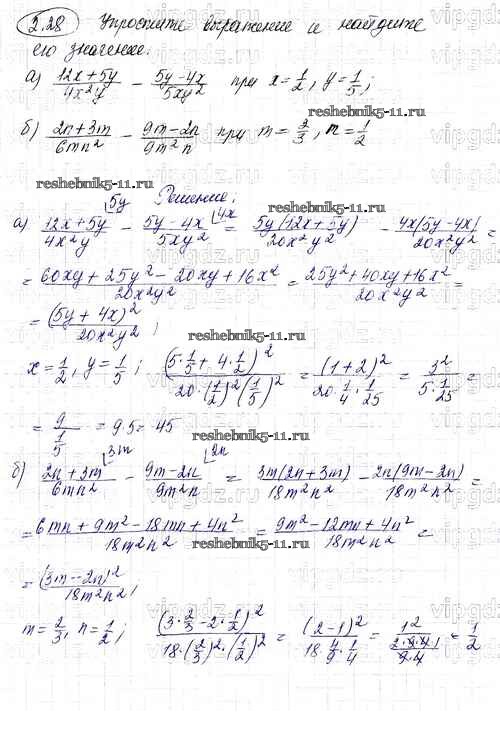 2.28 Упростите выражение и найдите
его значение.
а) (12x+5y)/(4x²y) − (5y−4x)/(5xy²) при x=1/2, y=1/5;
б) (2n+3m)/(6mn²) − (9m−2n)/(9m²n) при m=2/3, n=1/2
reshebnik5-11.ru
Решение:
а) (12x+5y)/(4x²y) ⌊5y − (5y−4x)/(5xy²) ⌊4x = 5y(12x+5y)/(20x²y²) − 4x(5y−4x)/(20x²y²) =
= (60xy+25y²−20xy+16x²)/(20x²y²) = (25y²+40xy+16x²)/(20x²y²) =
= (5y+4x)²/(20x²y²);
reshebnik5-11.ru
x=1/2, y=1/5; (5·1/5+4·1/2)²/(20·(1/2)²(1/5)²) = (1+2)²/(20·1/4·1/25) = 3²/(5·1/25) =
= 9/(1/5) = 9·5 = 45
reshebnik5-11.ru
б) (2n+3m)/(6mn²) ⌊3m − (9m−2n)/(9m²n) ⌊2n = 3m(2n+3m)/(18m²n²) − 2n(9m−2n)/(18m²n²) =
= (6mn+9m²−18mn+4n²)/(18m²n²) = (9m²−12mn+4n²)/(18m²n²) =
reshebnik5-11.ru
= (3m−2n)²/(18m²n²);
m=2/3, n=1/2; (3·2/3−2·1/2)²/(18·(2/3)²·(1/2)²) = (2−1)²/(18·4/9·1/4) = 1²/((2·9·4)/(9·4)) = 1/2
reshebnik5-11.ru